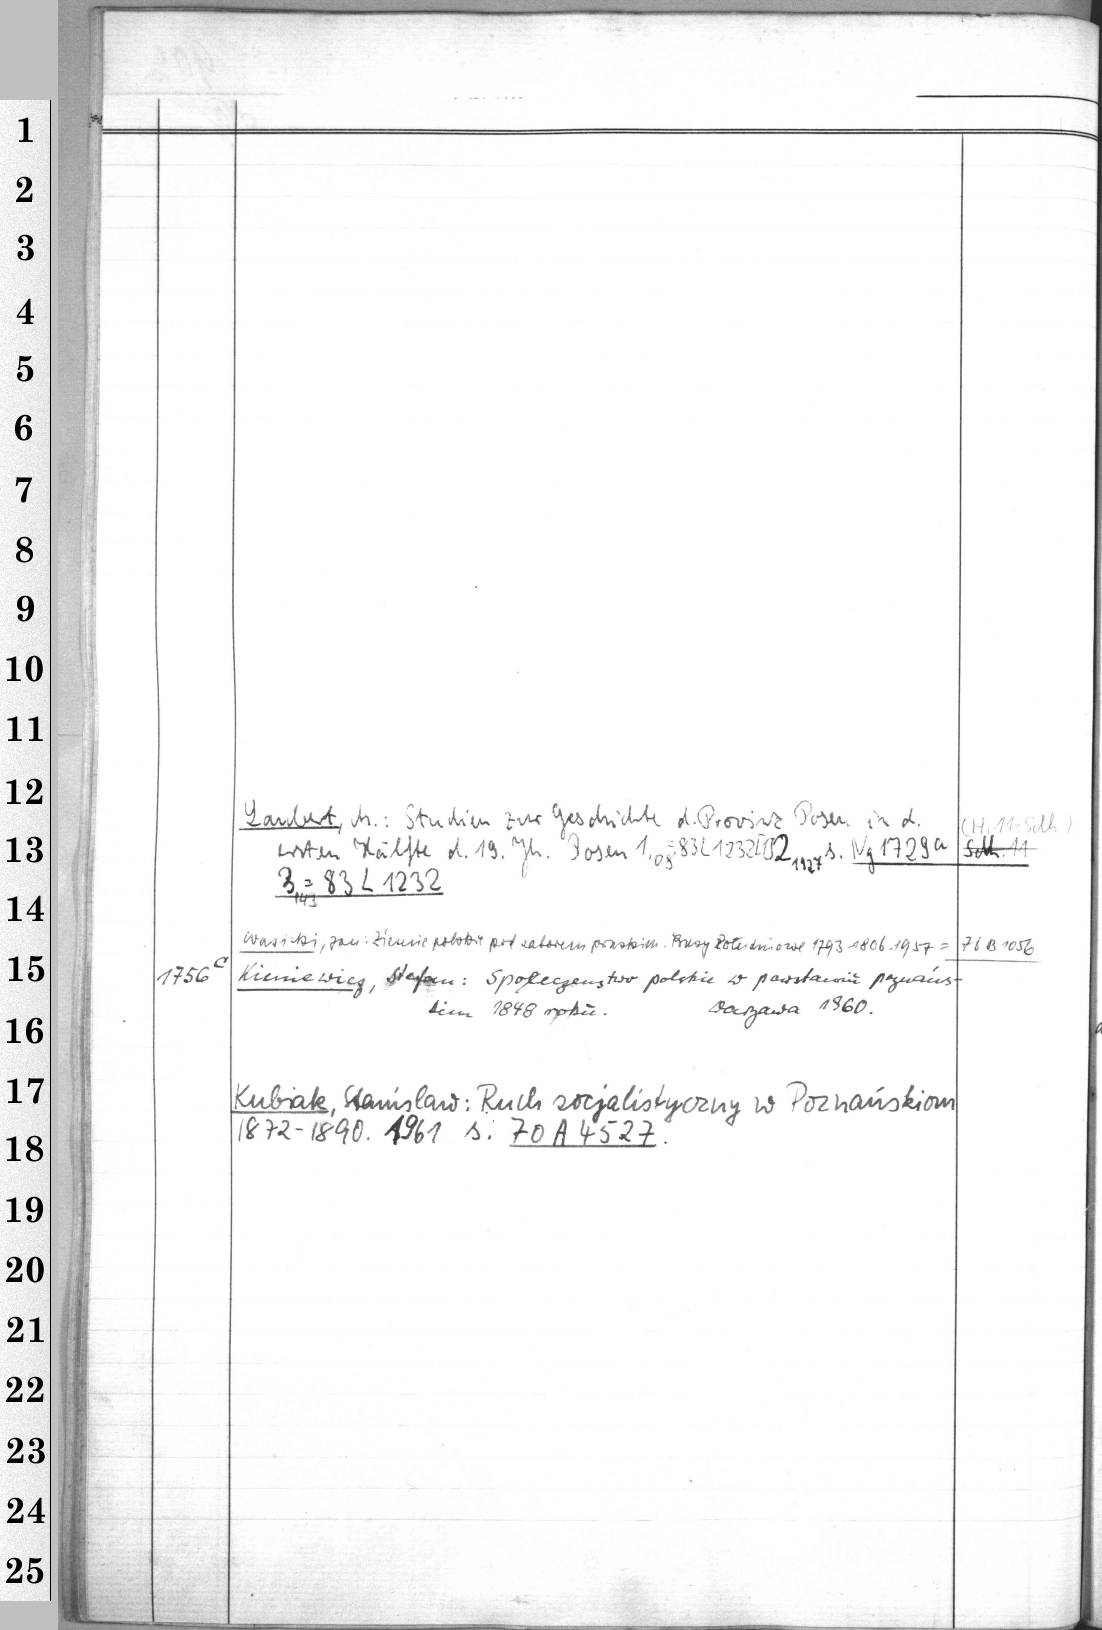 1
2
3
4
5
6
7
8
9
10
11
12
Laubert, M.: Studien zur Geschichte d. Provinz Posen in d. (H. 11-Sdh.)
13
ersten Hälfte d. 19. Jh. Posen 1,08 = 83 L 1232[1] 2,1927 s. Ng 1729a Sdh. 11
3,143 = 83 L 1232
14
Wąsicki, Jan: Ziemie polskie pod zaborem pruskim. Prusy Południowe 1793-1806. 1957 = 76 B 1056
15
1756c Kieniewicz, Stefan: Społeczeństwo polskie w powstaniu poznańs-
kim 1848 roku. Warszawa 1960.
16
17
Kubiak, Stanislaw: Ruch socjalistyczny w Poznańskiom
1872-1890. 1961 s: 70 A 4527.
18
19
20
21
22
23
24
25